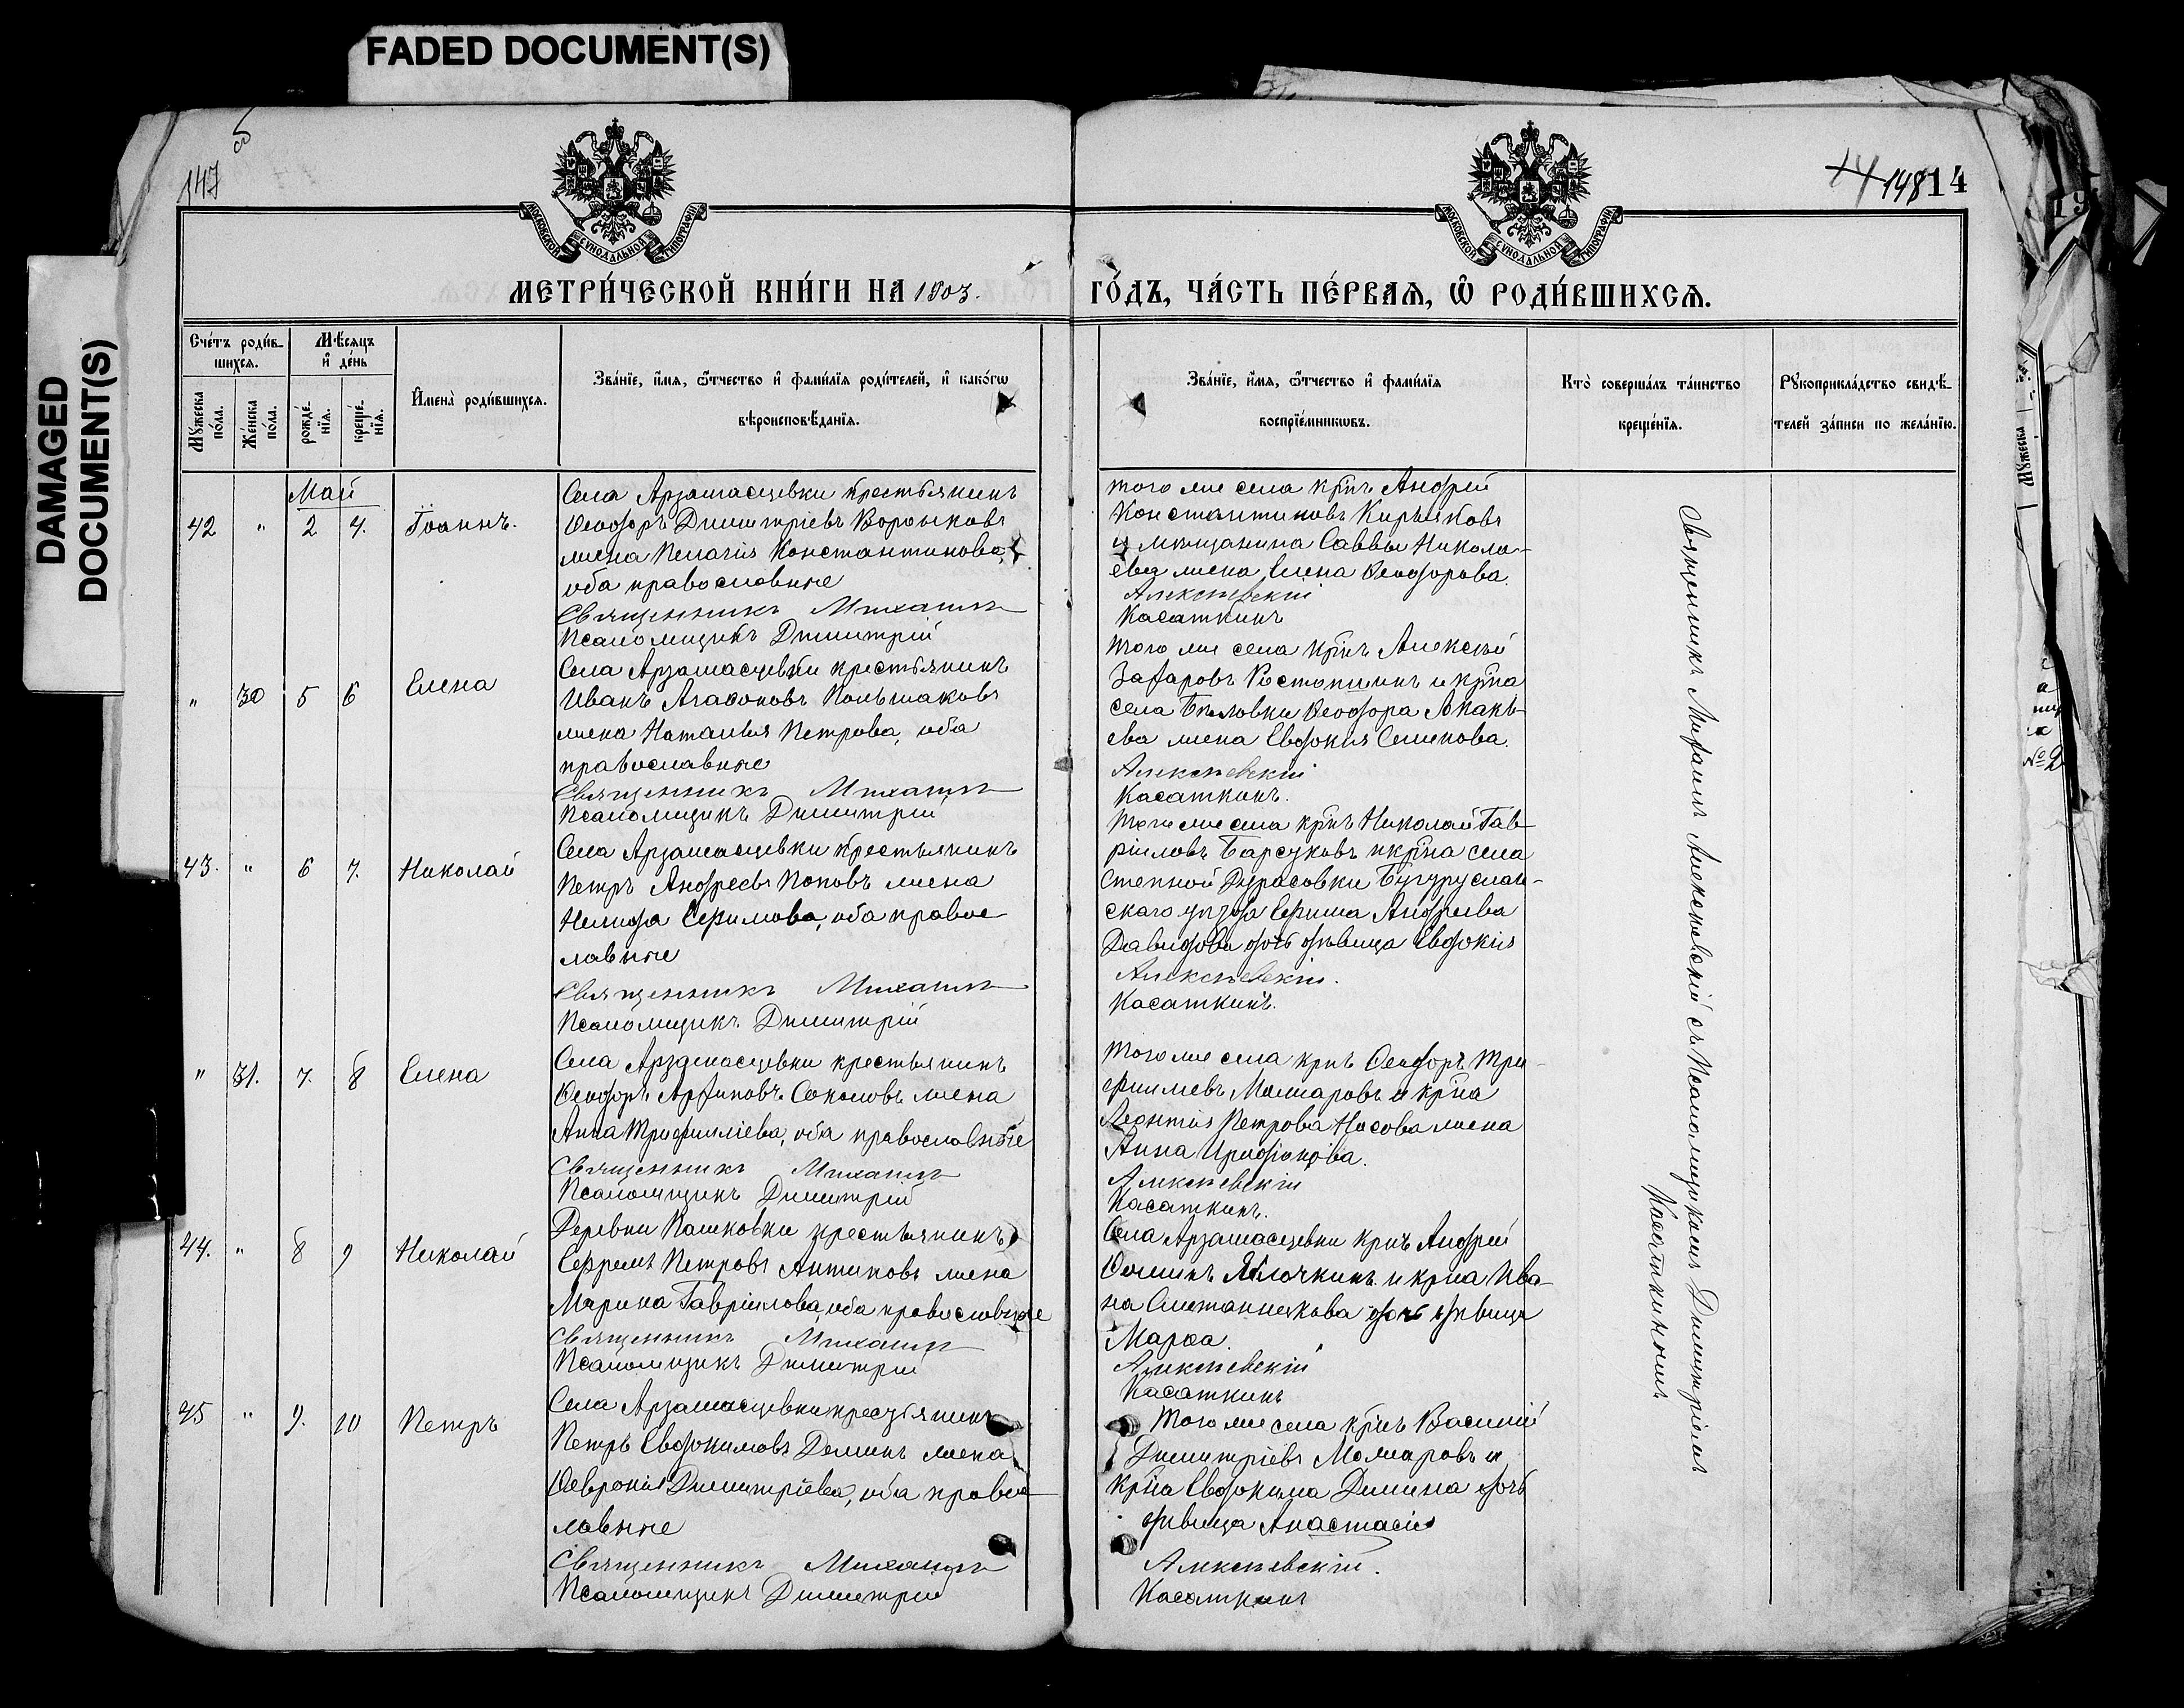 FADED DOCUMENT(S)
DAMAGED
DOCUMENT(S)
147
148 14
МОСКОВСКОЙ СѴНОДАЛЬНОЙ ТИПОГРАФІИ
МОСКОВСКОЙ СѴНОДАЛЬНОЙ ТИПОГРАФІИ
МЕТРИ́ЧЕСКОЙ КНИ́ГИ НА 1903.
ГО́ДЪ, ЧА́СТЬ ПЕ́РВАѦ, Ѽ РОДИ́ВШИХСѦ.
Сче́тъ роди́в-
шихсѧ.
Мѣ́сѧцъ
и҆ де́нь
Мꙋ́жеска
по́ла.
Же́нска
по́ла.
рожде́-
нїѧ.
креще́-
нїѧ.
И҆мена̀ роди́вшихсѧ.
Зва́нїе, и҆́мѧ, ѻ҆́тчество и҆ фами́лїѧ роди́телей, и҆ како́гѡ
вѣроисповѣ́данїѧ.
Зва́нїе, и҆́мѧ, ѻ҆́тчество и҆ фами́лїѧ
воспрїе́мникѡвъ.
Кто̀ соверша́лъ та́инство
креще́нїѧ.
Рꙋкоприкла́дство свидѣ́-
телей за́писи по жела́нїю.
Май
42 " 2 4. Іоаннъ.
Села Арзамасцевки крестьянинъ
Ѳеодоръ Димитріевъ Воронковъ
жена Пелагія Константинова,
оба православные
Священникъ Михаилъ
Псаломщикъ Димитрій
того же села кр̃нъ Андрей
Константиновъ Кирьяковъ
и мѣщанина Саввы Никола-
ева жена Елена Ѳеодорова.
Алексѣевскій
Касаткинъ
" 30 5 6 Елена
Села Арзамасцевки крестьянинъ
Иванъ Агаѳоновъ Польшаковъ
жена Наталія Петрова, оба
православные
Священникъ Михаилъ
Псаломщикъ Димитрій
того же села кр̃нъ Алексѣй
Захаровъ Костокшинъ и кр̃на
села Бѣловки Ѳеодора
ева жена Евдокія Семенова.
Алексѣевскій
Касаткинъ.
43. " 6 7. Николай
Села Арзамасцевки крестьянинъ
Петръ Андреевъ Поповъ жена
Неонила Ефимова, оба правос-
лавные
Священникъ Михаилъ
Псаломщикъ Димитрій
того же села кр̃нъ Николай Гав-
ріиловъ Барсуковъ и кр̃на села
Степной Дурасовки Бугуруслан-
скаго уѣзда Ефима Андреева
Давидова дочь дѣвица Евдокія
Алексѣевскій.
Касаткинъ.
" 31. 7. 8 Елена
Села Арзамасцевки крестьянинъ
Ѳеодоръ Архиповъ Соколовъ жена
Анна Трифиліева, оба православные
Священникъ Михаилъ
Псаломщикъ Димитрій
того же села крнъ Ѳеодоръ Три-
филіевъ Мошаровъ и кр̃на
Леонтія Петрова Носова жена
Анна
Алексѣевскій
Касаткинъ.
44. " 8 9 Николай
Деревни Пашковки крестьянинъ
Ефремъ Петровъ Антиповъ жена
Марина Гавріилова, оба православные
Священникъ Михаилъ
Псаломщикъ Димитрій
Села Арзамасцевки крнъ Андрей
Ѳоминъ Яблочкинъ и крна Ива-
на Сметанникова дочь дѣвица
Марѳа.
Алексѣевскій
Касаткинъ
45 " 9. 10 Петръ
Села Арзамасцевки крестьянинъ
Петръ Евдокимовъ Деминъ жена
Ѳевронія Димитріева, оба правос-
лавные
Священникъ Михаилъ
Псаломщикъ Димитрій
Того же села кр̃нъ Василій
Димитріевъ Мошаровъ и
кр̃на Евдокима Демина дочь
дѣвица Анастасія
Алексѣевскій.
Касаткинъ
Священникъ Михаилъ Алексѣевскій съ Псаломщикомъ Димитріемъ
Касаткинымъ
19
Мꙋ́жеска
№2